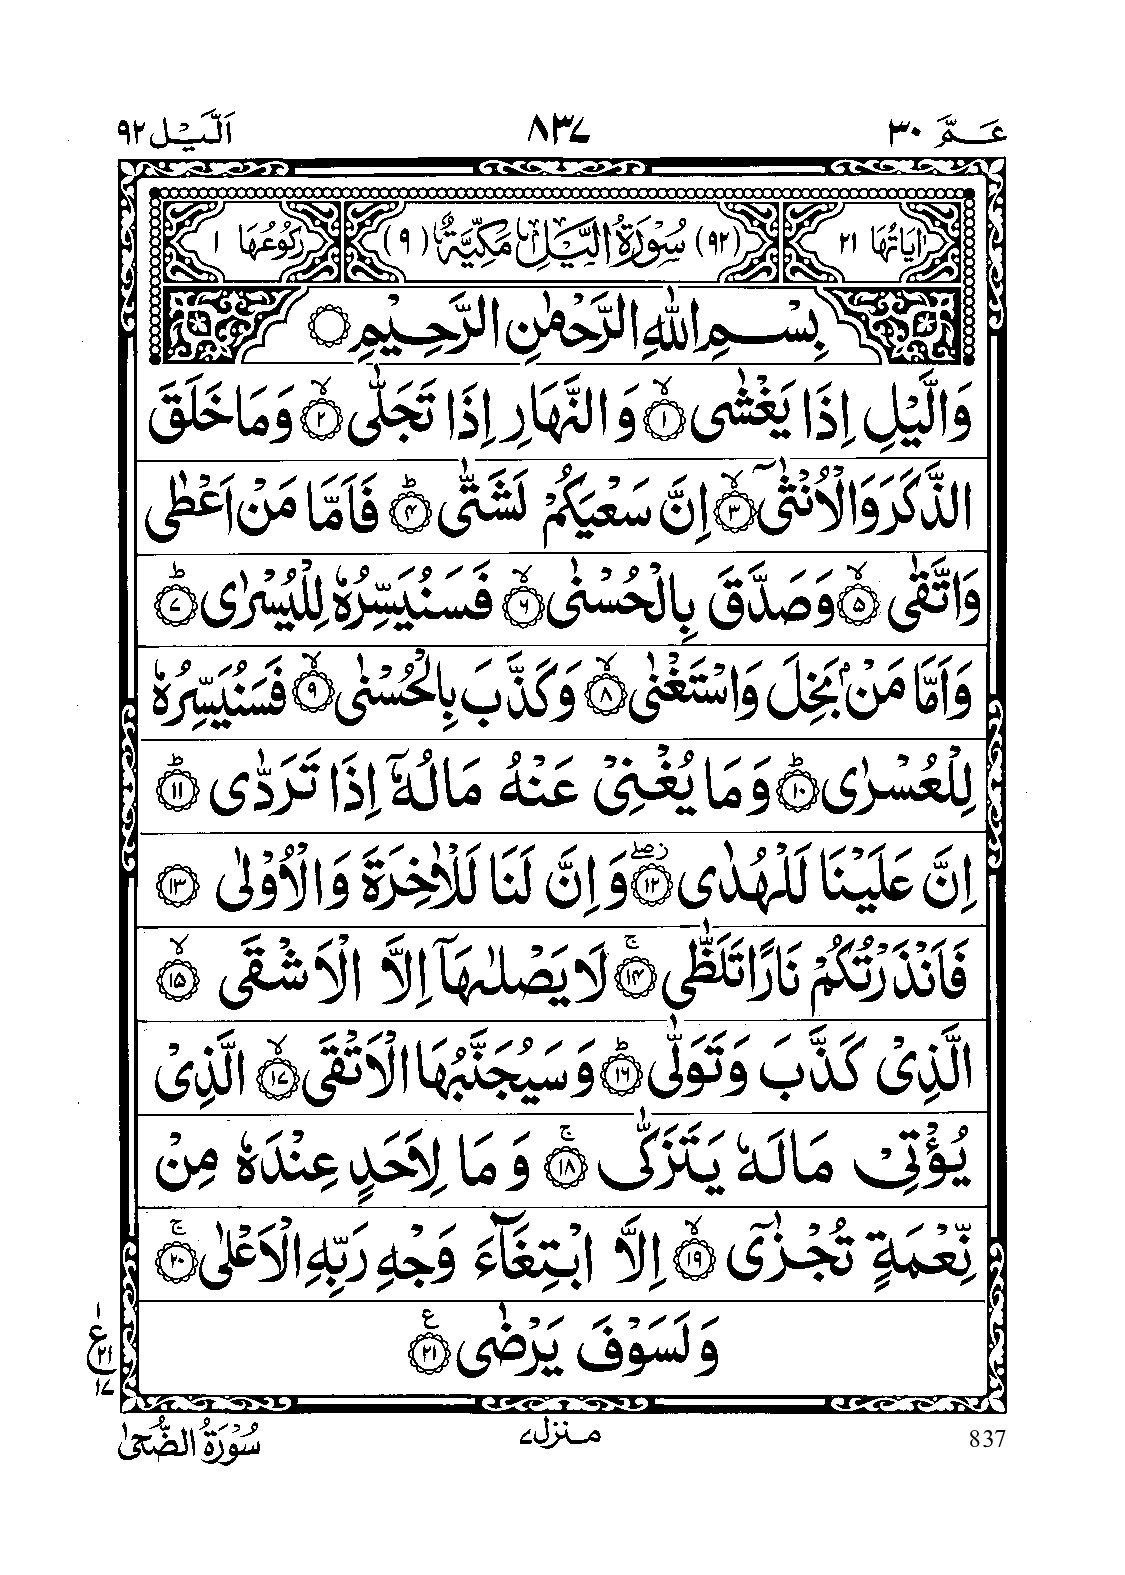 عَـمَّ ٣٠ ٨٣٧ اَلَّيـل ٩٢
اٰيَاتُهَا ٢١ (٩٢) سُوْرَةُ الَّيْلِ مَكِّيَّةٌ (٩) رُكُوْعُهَا ١
بِسْمِ اللّٰهِ الرَّحْمٰنِ الرَّحِيْمِ ۝
وَالَّيْلِ اِذَا يَغْشٰى ۙ﴿١﴾ وَالنَّهَارِ اِذَا تَجَلّٰى ۙ﴿٢﴾ وَمَا خَلَقَ
الذَّكَرَ وَالْاُنْثٰٓى ۙ﴿٣﴾ اِنَّ سَعْيَكُمْ لَشَتّٰى ؕ﴿٤﴾ فَاَمَّا مَنْ اَعْطٰى
وَاتَّقٰى ۙ﴿٥﴾ وَصَدَّقَ بِالْحُسْنٰى ۙ﴿٦﴾ فَسَنُيَسِّرُهٗ لِلْيُسْرٰى ؕ﴿٧﴾
وَاَمَّا مَنْۢ بَخِلَ وَاسْتَغْنٰى ۙ﴿٨﴾ وَكَذَّبَ بِالْحُسْنٰى ۙ﴿٩﴾ فَسَنُيَسِّرُهٗ
لِلْعُسْرٰى ؕ﴿١٠﴾ وَمَا يُغْنِيْ عَنْهُ مَالُهٗٓ اِذَا تَرَدّٰى ؕ﴿١١﴾
اِنَّ عَلَيْنَا لَلْهُدٰى ۖز﴿١٢﴾ وَاِنَّ لَنَا لَلْاٰخِرَةَ وَالْاُوْلٰى ﴿١٣﴾
فَاَنْذَرْتُكُمْ نَارًا تَلَظّٰى ۚ﴿١٤﴾ لَا يَصْلٰىهَاۤ اِلَّا الْاَشْقَى ۙ﴿١٥﴾
الَّذِيْ كَذَّبَ وَتَوَلّٰى ؕ﴿١٦﴾ وَسَيُجَنَّبُهَا الْاَتْقَى ۙ﴿١٧﴾ الَّذِيْ
يُؤْتِيْ مَالَهٗ يَتَزَكّٰى ۚ﴿١٨﴾ وَمَا لِاَحَدٍ عِنْدَهٗ مِنْ
نِّعْمَةٍ تُجْزٰٓى ۙ﴿١٩﴾ اِلَّا ابْتِغَآءَ وَجْهِ رَبِّهِ الْاَعْلٰى ۚ﴿٢٠﴾
وَلَسَوْفَ يَرْضٰى ﴿٢١﴾ ع
١ ع ٢١ ١٧
837 مـنزل ٧ سُوْرَةُ الضُّحٰى